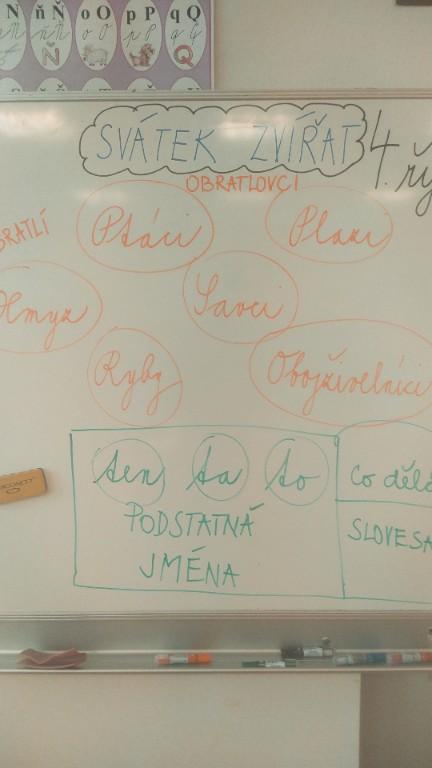 N ň Ň o O p P q Q
SVÁTEK ZVÍŘAT
4. ří
OBRATLOVCI
BRATLÍ
Ptáci
Plazi
Hmyz
Savci
Ryby
Obojživelníci
ten ta to
PODSTATNÁ
JMÉNA
co děla
SLOVESA